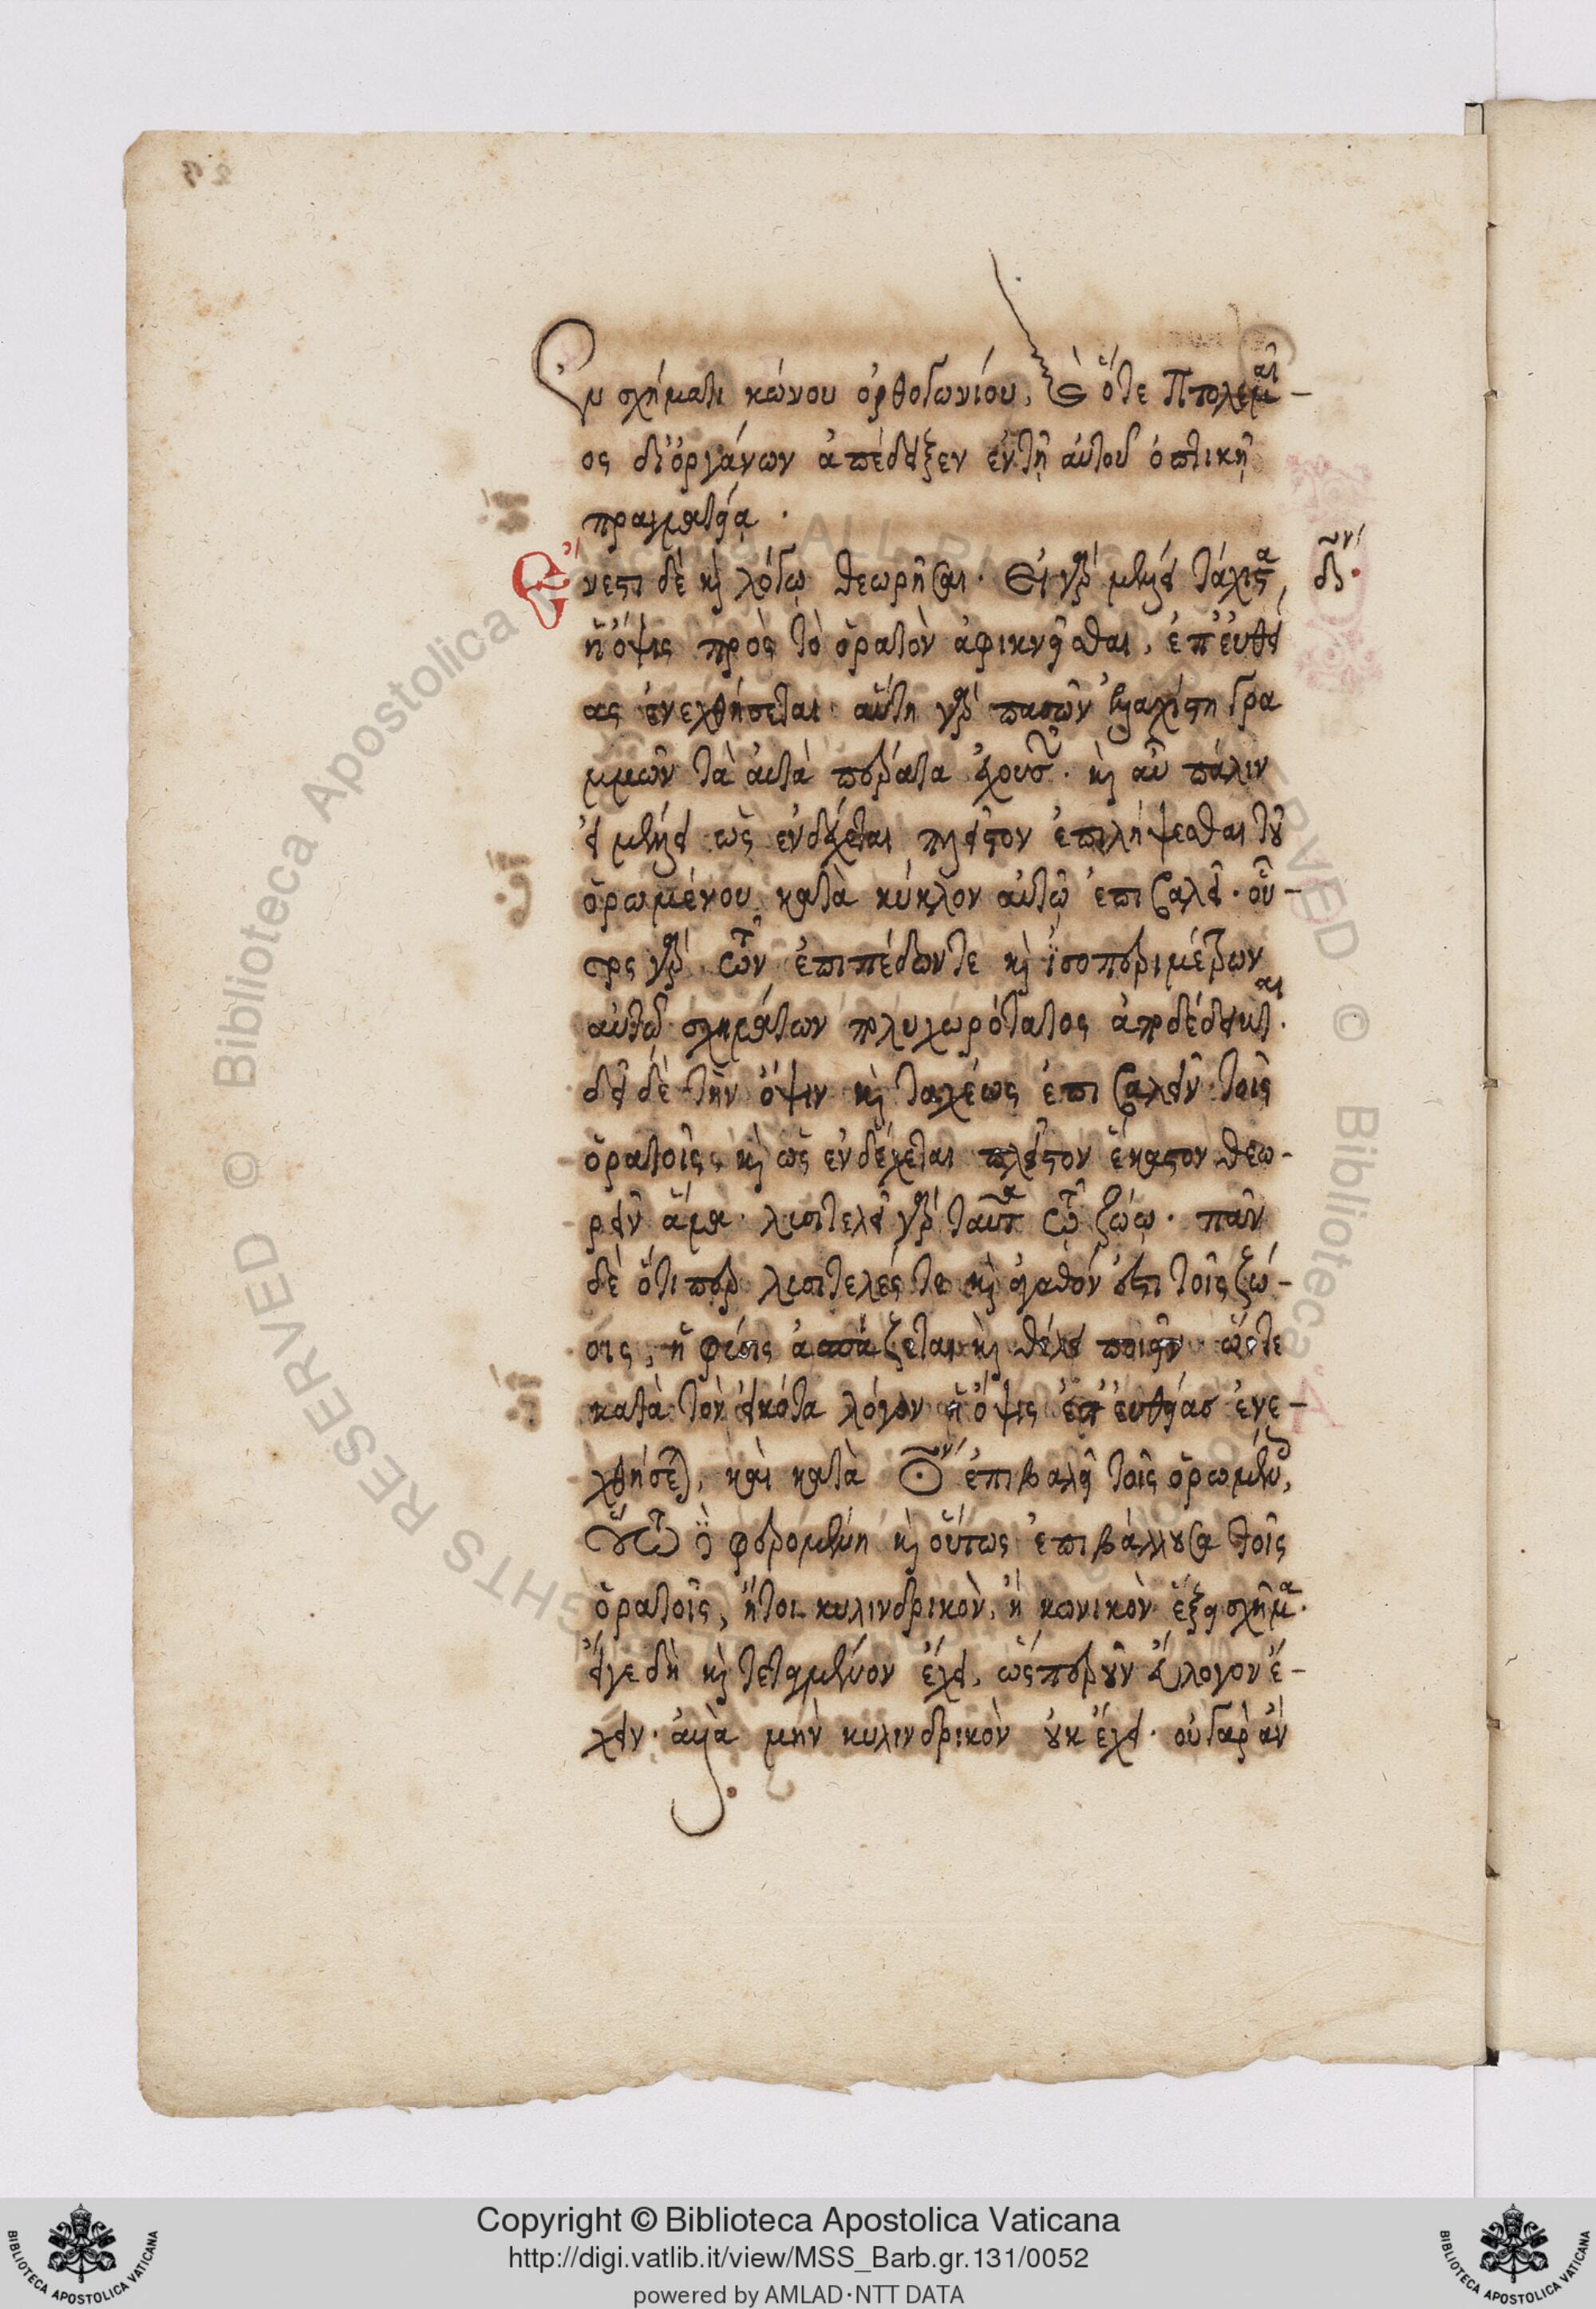 ἐν σχήματι κώνου ὀρθογωνίου, ὡς ὅτε Πτολεμαῖ-
ος δι' ὀργάνων ἀπέδειξεν ἐν τῇ αὐτοῦ ὀπτικῇ
πραγματείᾳ.
Ἔνεστι δὲ καὶ λόγῳ θεωρῆσαι. Εἰ γὰρ μέλλει τάχιστα,
ἡ ὄψις πρὸς τὸ ὁρατὸν ἀφικνεῖσθαι, ἐπ' εὐθεί
ας ἐνεχθήσεται· αὕτη γὰρ πασῶν ἐλαχίστη γρα
μμῶν τὰ αὐτὰ πέρατα ἐχουσῶν. καὶ αὖ πάλιν
εἰ μέλλει ὡς ἐνδέχεται πλεῖστον ἐπιλήψεσθαι τοῦ
ὁρωμένου κατὰ κύκλον αὐτῷ ἐπιβαλεῖ. οὗ-
τος γὰρ τῶν ἐπιπέδων τε καὶ ἰσοπεριμέτρων
αὐτῷ σχημάτων πολυχωρότατος ἀποδέδεικται.
δεῖ δὲ τὴν ὄψιν καὶ ταχέως ἐπιβαλεῖν τοῖς
ὁρατοῖς, καὶ ὡς ἐνδέχεται πλεῖστον ἕκαστον θεω-
ρεῖν ἅμα. λυσιτελεῖ γὰρ ταῦτα τῷ ζώῳ. πᾶν
δὲ ὅτι περ λυσιτελές τε καὶ ἀγαθόν ἐστι τοῖς ζώ-
οις, ἡ φύσις ἀσπάζεται καὶ θέλει ποιεῖν. ὥστε
κατὰ τὸν εἰκότα λόγον ἡ ὄψις ἐπ' εὐθείας ἐνε-
χθήσεται, καὶ κατὰ κύκλον ἐπιβαλεῖ τοῖς ὁρωμένοις,
οὕτω δὲ φερομένη καὶ οὕτως ἐπιβάλλουσα τοῖς
ὁρατοῖς, ἤτοι κυλινδρικὸν, ἢ κωνικὸν ἕξει σχῆμα.
εἴγε δὴ καὶ τεταγμένον ἔχει, ὥσπερ οὖν εὔλογον ἔ-
χειν. ἀλλὰ μὴν κυλινδρικὸν οὐκ ἔχει. οὐ γὰρ ἂν